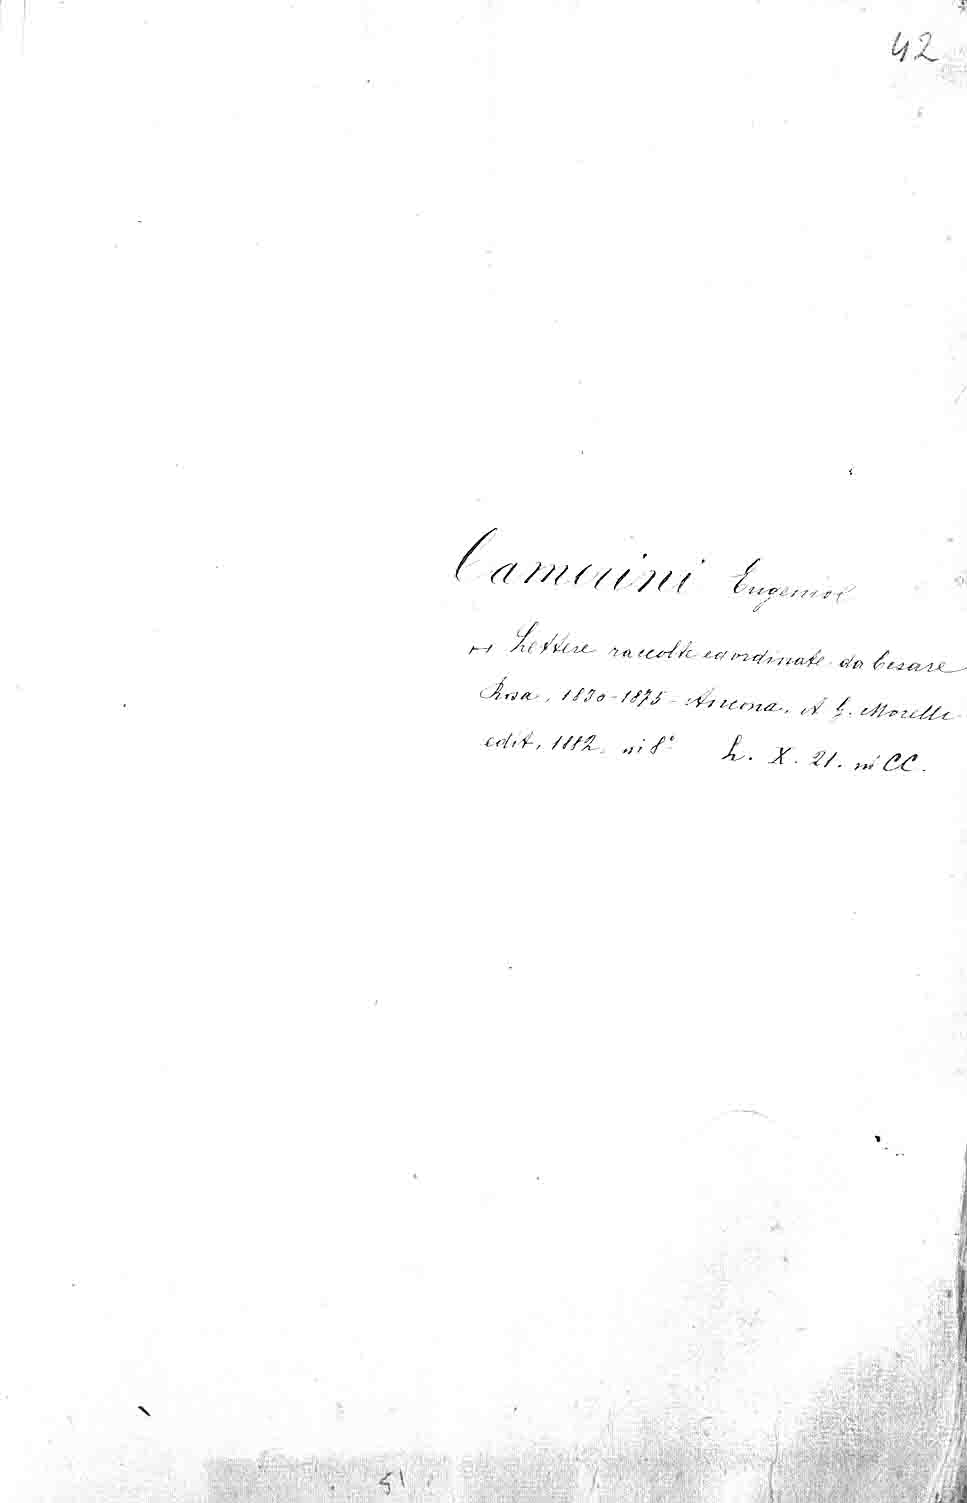 42
Camerini Eugenio
Lettere raccolte e ordinate da Cesare
Rosa, 1830-1875 - Ancona, A. G. Morelli
edit, 1882, in 8°. L. X. 21. in CC.
51